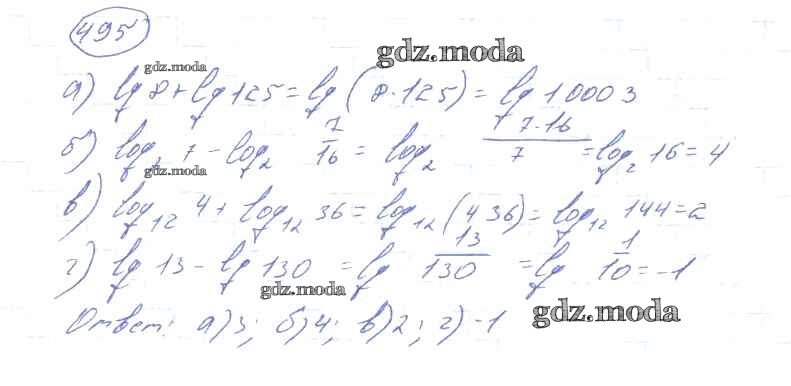 495
gdz.moda
gdz.moda
а) lg 8 + lg 125 = lg (8·125) = lg 1000 3
б) log₂ 7 - log₂ 7/16 = log₂ 7·16/7 = log₂ 16 = 4
gdz.moda
в) log₁₂ 4 + log₁₂ 36 = log₁₂ (4 36) = log₁₂ 144 = 2
г) lg 13 - lg 130 = lg 13/130 = lg 1/10 = -1
gdz.moda
Ответ: а) 3; б) 4; в) 2; г) -1
gdz.moda